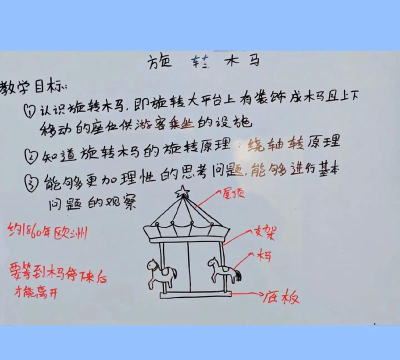 旋 转 木 马
教学目标:
①认识旋转木马,即旋转大平台上有装饰成木马且上下
移动的座位供游客乘坐的设施
②知道旋转木马的旋转原理:绕轴转原理
③能够更加理性的思考问题,能够进行基本
问题的观察
屋顶
约1860年欧洲
支架
木马
要等到木马停下来后
才能离开
底板